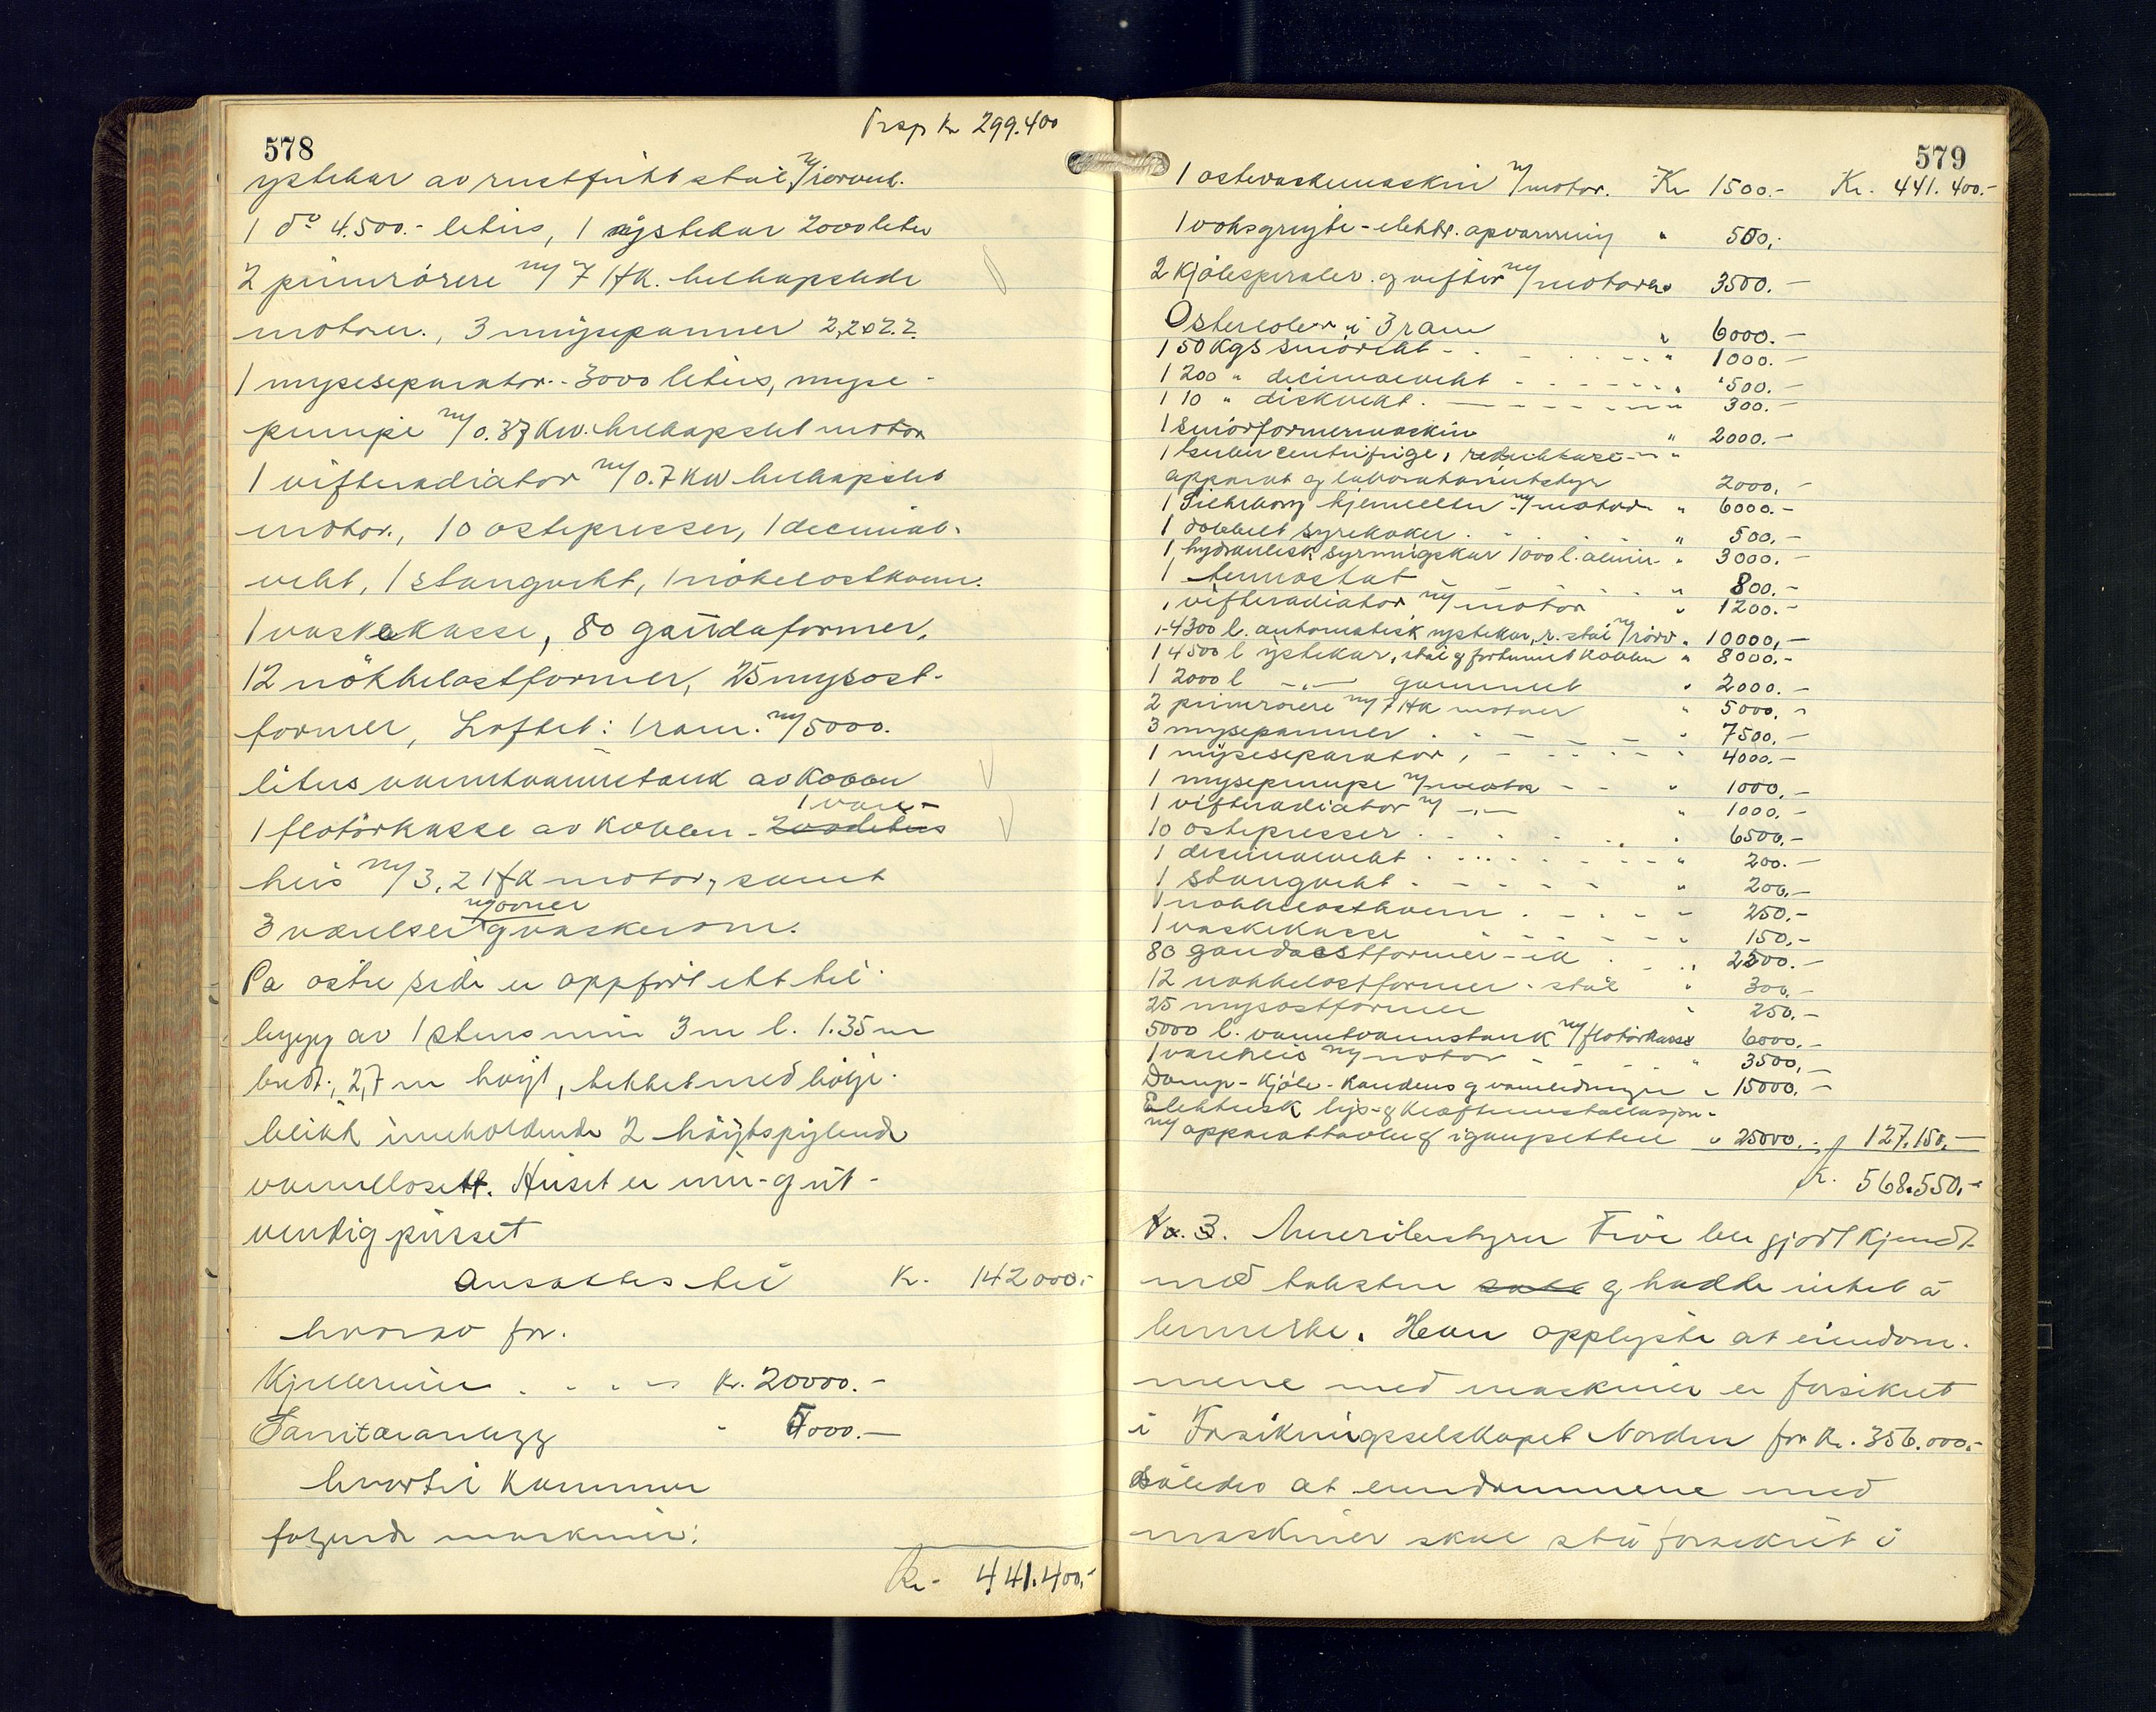 578
Trsp kr 299.400
ystekar av rustfritt stål m/rørverk.
1 do 4.500.- liters, 1 ystekar 2000 liter
2 primrørere m/ 7 HK. helkapslede
motorer., 3 mysepanner 2,2 og 2.2
1 myseseparator.- 3000 liters, myse-
pumpe m/ 0.37 Kw. helkapslet motor
1 vifteradiator m/ 0.7 KW helkapslet
motor., 10 ostepresser, 1 decimal-
vekt, 1 stangvekt, 1 nökelostkvern.
1 vaskekasse, 80 gaudaformer,
12 nökkelostformer, 25 mysost-
former, Loftet: 1 rom. m/ 5000.
liters varmtvannstank av Kobber
1 vare-
1 flotörkasse av Kobber - 200 liters
heis m/ 3.2 HK motor, samt
m/ ovner
3 værelser og vaskerom.
På østre side er oppført ett til-
bygg av 1 stens mur 3 m l. 1.35 m
bredt, 2,7 m høyt, tekket med bølge-
blikk inneholdende 2 høytspylende
vannklosett. Huset er inn- og ut-
vendig pusset
Ansattes til Kr. 142000.-
hvorav for.
Kjellermur . . . . Kr. 20000.-
Sanitæranlegg - 5000.-
hvortil kommer
følgende maskiner:
Kr. 441.400,-
579
1 ostevaskemaskin m/motor. Kr 1500.- Kr. 441.400.-
1 voksgryte - elektr. opvarming " 500,-
2 Kjølespiraler og vifter m/motorer " 3500.-
Ostereoler i 3 rom " 6000.-
1 50 Kgs smörvekt - . - . . . - " 1000.-
1 200 " decimalvekt - - - - - " 500.-
1 10 " diskvekt. - - - - - " 300.-
1 Smörformemaskin " 2000.-
1 Gerber centrifuge, reduktase- "
apparat og laboratorieutstyr 2000,-
1 Silkeborg kjerneelter m/motor " 6000.-
1 dobbelt syrekoker . . . . " 500,-
1 hydraulisk syrningskar 1000 l. alumin. " 3000.-
1 termostat . . . " 800.-
1 vifteradiator m/ motor " 1200.-
1- 4300 l. automatisk ystekar, r. stål m/rörv. " 10000,-
1 4500 l ystekar, stål og fortinnet kobber " 8000.-
1 2000 l -"- gammelt " 2000.-
2 primrørere m/ 7 HK motorer " 5000,-
3 mysepanner . . - - - " 7500,-
1 myseseparator, - - - - " 4000.-
1 mysepumpe m/motor - - " 1000,-
1 vifteradiator m/ -"- " 1000.-
10 ostepresser . . . . . " 6500,-
1 decimalvekt . . . . - - - " 200.-
1 Stangvekt . - - - - " 200,-
1 nökkelostkvern . - . - - 250.-
1 vaskekasse - - - - - " 150.-
80 gaudaostformer - ek . . " 2500.-
12 nökkelostformer - stål " 300,-
25 mysostformer " 250.-
5000 l. varmtvannstank m/ flotörkasse 6000.-
1 vareheis m/ motor - " 3500,-
Damp- Kjøle- Kondens og vannledninger " 15000.-
Elektrisk lys- og Kraftinnstallasjon-
m/ apparattavle og igangsettere " 25000.- " 127.150,-
Kr. 568.550,-
Nr. 3. Meieribestyrer Five ble gjort kjendt
med taksten og hadde intet å
bemerke. Han opplyste at eiendom-
mene med maskiner er forsikret
i Forsikringsselskapet Norden for Kr. 356.000.-
således at eiendommene med
maskiner skal stå forsikret i